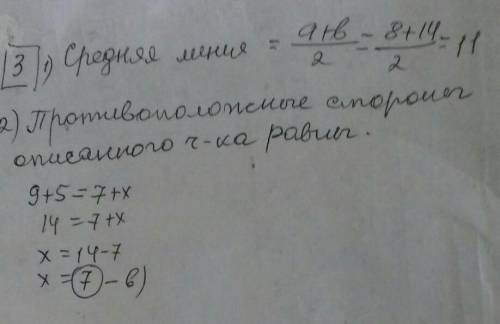 3 1) Средняя линия = a+b/2 = 8+14/2 = 11
2) Противоположные стороны
описанного ч-ка равны.
9+5=7+x
14=7+x
x=14-7
x=7-в)